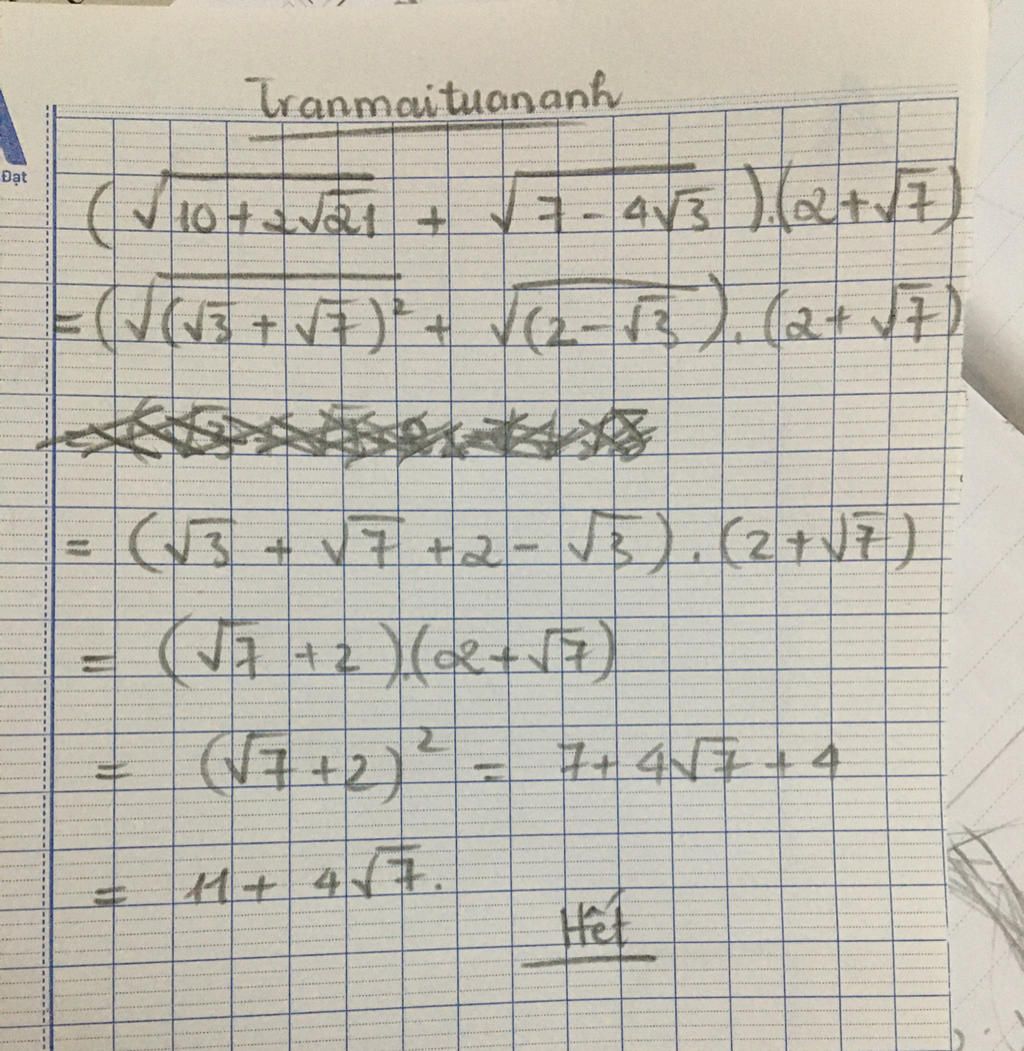 Đạt
Tranmaituananh
(√(10 + 2√21) + √(7 - 4√3)).(2 + √7)
= (√(√3 + √7)² + √(2 - √3)).(2 + √7)
= (√3 + √7 + 2 - √3).(2 + √7)
= (√7 + 2).(2 + √7)
= (√7 + 2)² = 7 + 4√7 + 4
= 11 + 4√7.
Hết